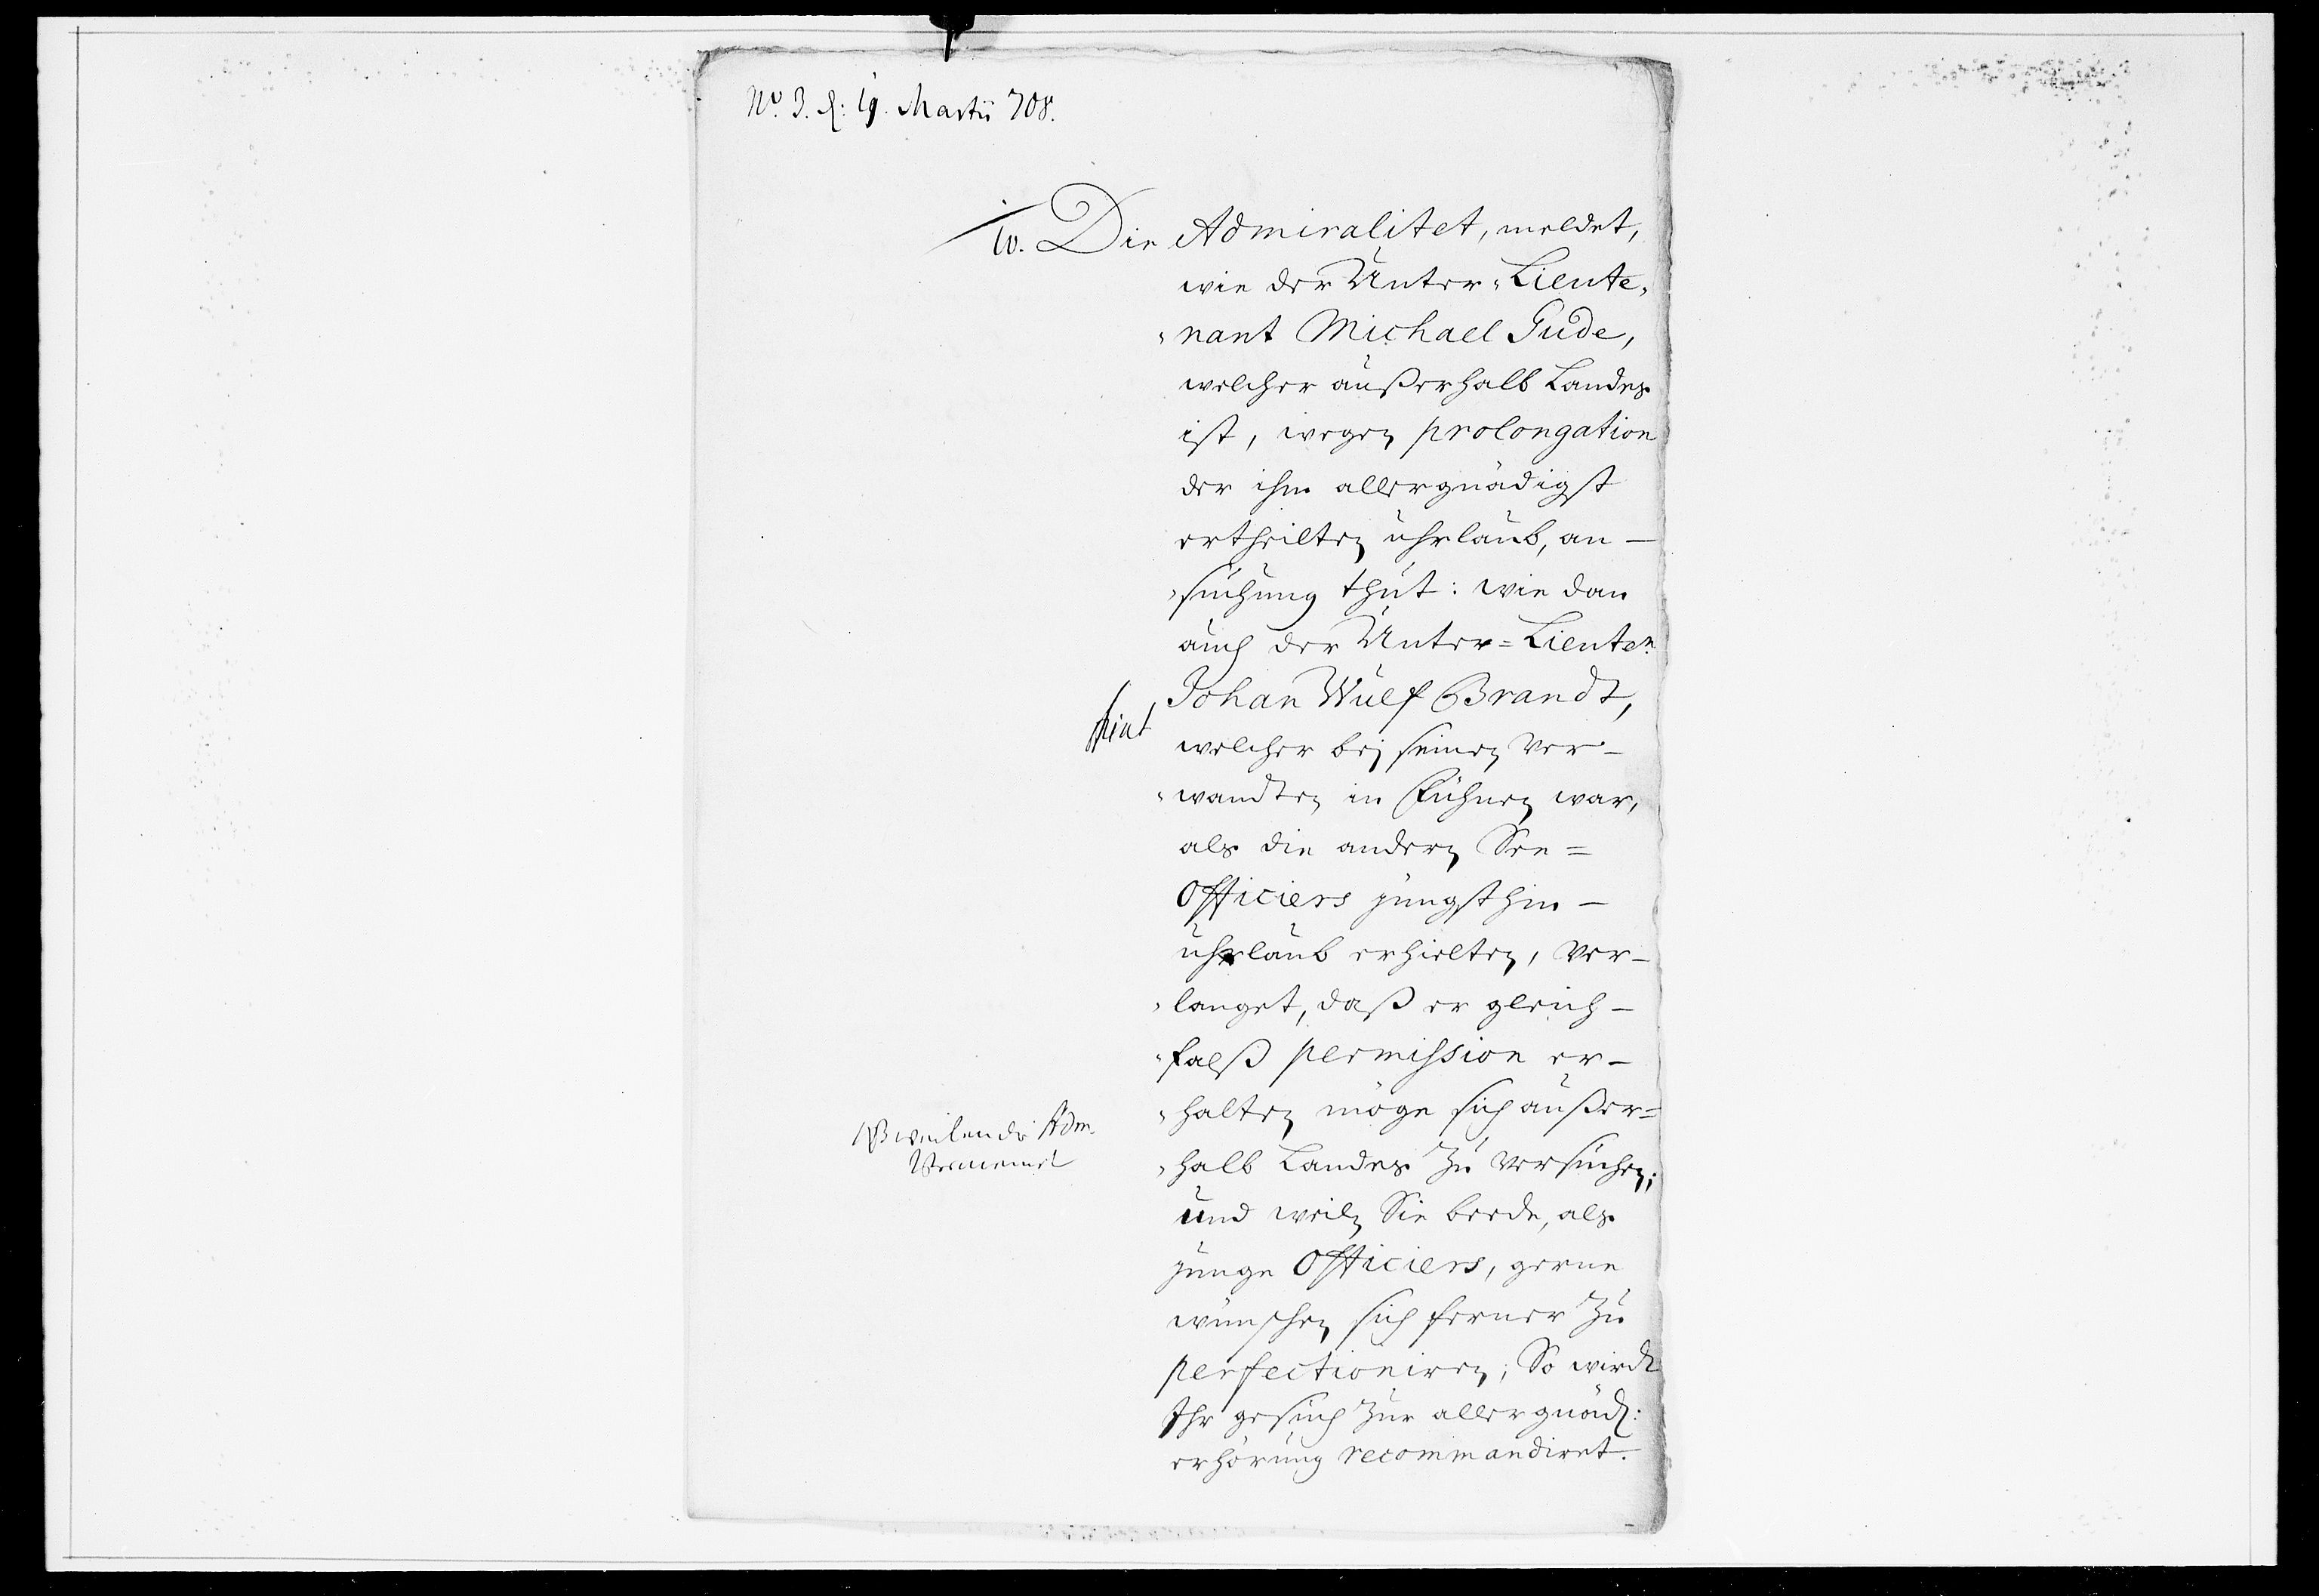 No. 3. d: 19. Martii 708.
10. Die Admiralitet, meldet,
wie der Unter-Lieute-
nant Michael Gude,
welcher außerhalb Landes
ist, wegen prolongation
der ihm allergnädigst
ertheilten uhrlaub, an-
suchung thut: wie dan
auch der Unter-Lieuten:
Johan Wulf Brandt,
fiat
welcher bej seinen Ver-
wandten in Fühnen war,
als die andern See-
Officiers jüngsthin-
uhrlaub erhielten, Ver-
langet, daß er gleich-
falß permission er-
halten möge sich außer-
halb Landes zu versuchen;
NB weilen die Adm.
Vermeinet
und weiln Sie beede, als
junge Officiers, gerne
wünschen sich ferner zu
perfectioniren; So wirdt
Ihr gesuch zur allergnäd:
erhörung recommandiret.